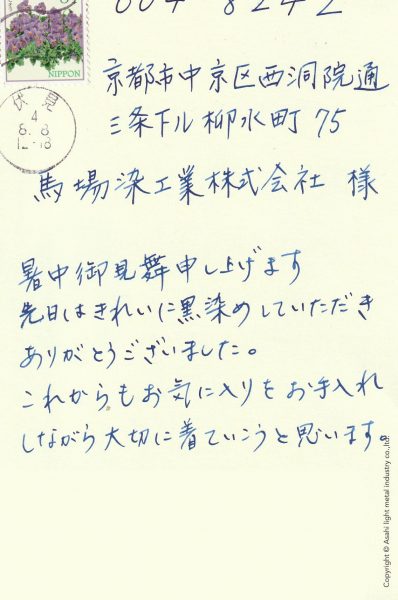 604 8242
NIPPON
伏見
4
8.8
12-18
京都市中京区西洞院通
三条下ル柳水町75
馬場染工業株式会社 様
暑中御見舞申し上げます
先日はきれいに黒染めしていただき
ありがとうございました。
これからもお気に入りをお手入れ
しながら大切に着ていこうと思います。
Copyright © Asahi light metal industry co.,ltd.